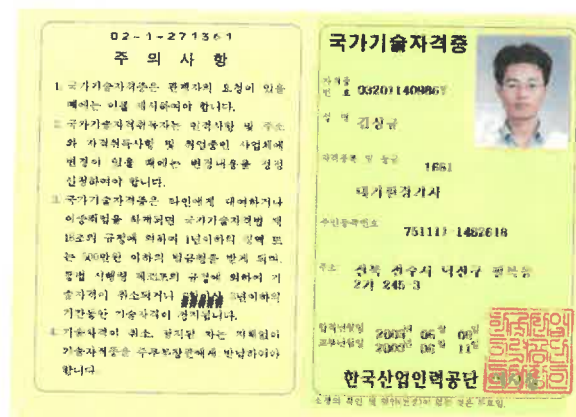 02-1-271361
주 의 사 항
1. 국가기술자격증은 관계자의 요청이 있을
때에는 이를 제시하여야 합니다.
2. 국가기술자격취득자는 인적사항 및 주소
와 자격취득사항 및 취업중인 사업체에
변경이 있을 때에는 변경내용을 정정
신청하여야 합니다.
3. 국가기술자격증은 타인에게 대여하거나
이중취업을 하게되면 국가기술자격법 제
18조의 규정에 의하여 1년이하의 징역 또
는 500만원 이하의 벌금형을 받게 되며,
동법 시행령 의 규정에 의하여 기
술자격이 취소되거나 년이하의
기간동안 기술자격이 정지됩니다.
4. 기술자격이 취소, 정지된 자는 지체없이
기술자격증을 주무부장관에게 반납하여야
합니다.
국가기술자격증
자격증
번 호 03201140986
성 명 김상균
자격종목 및 등급 1681
대기환경기사
주민등록번호
751111-1482618
주소 전북 전주시 덕진구
2가 245-3
합격년월일 2003년 06월 09일
교부년월일 2003년 06월 11일
한국산업인력공단